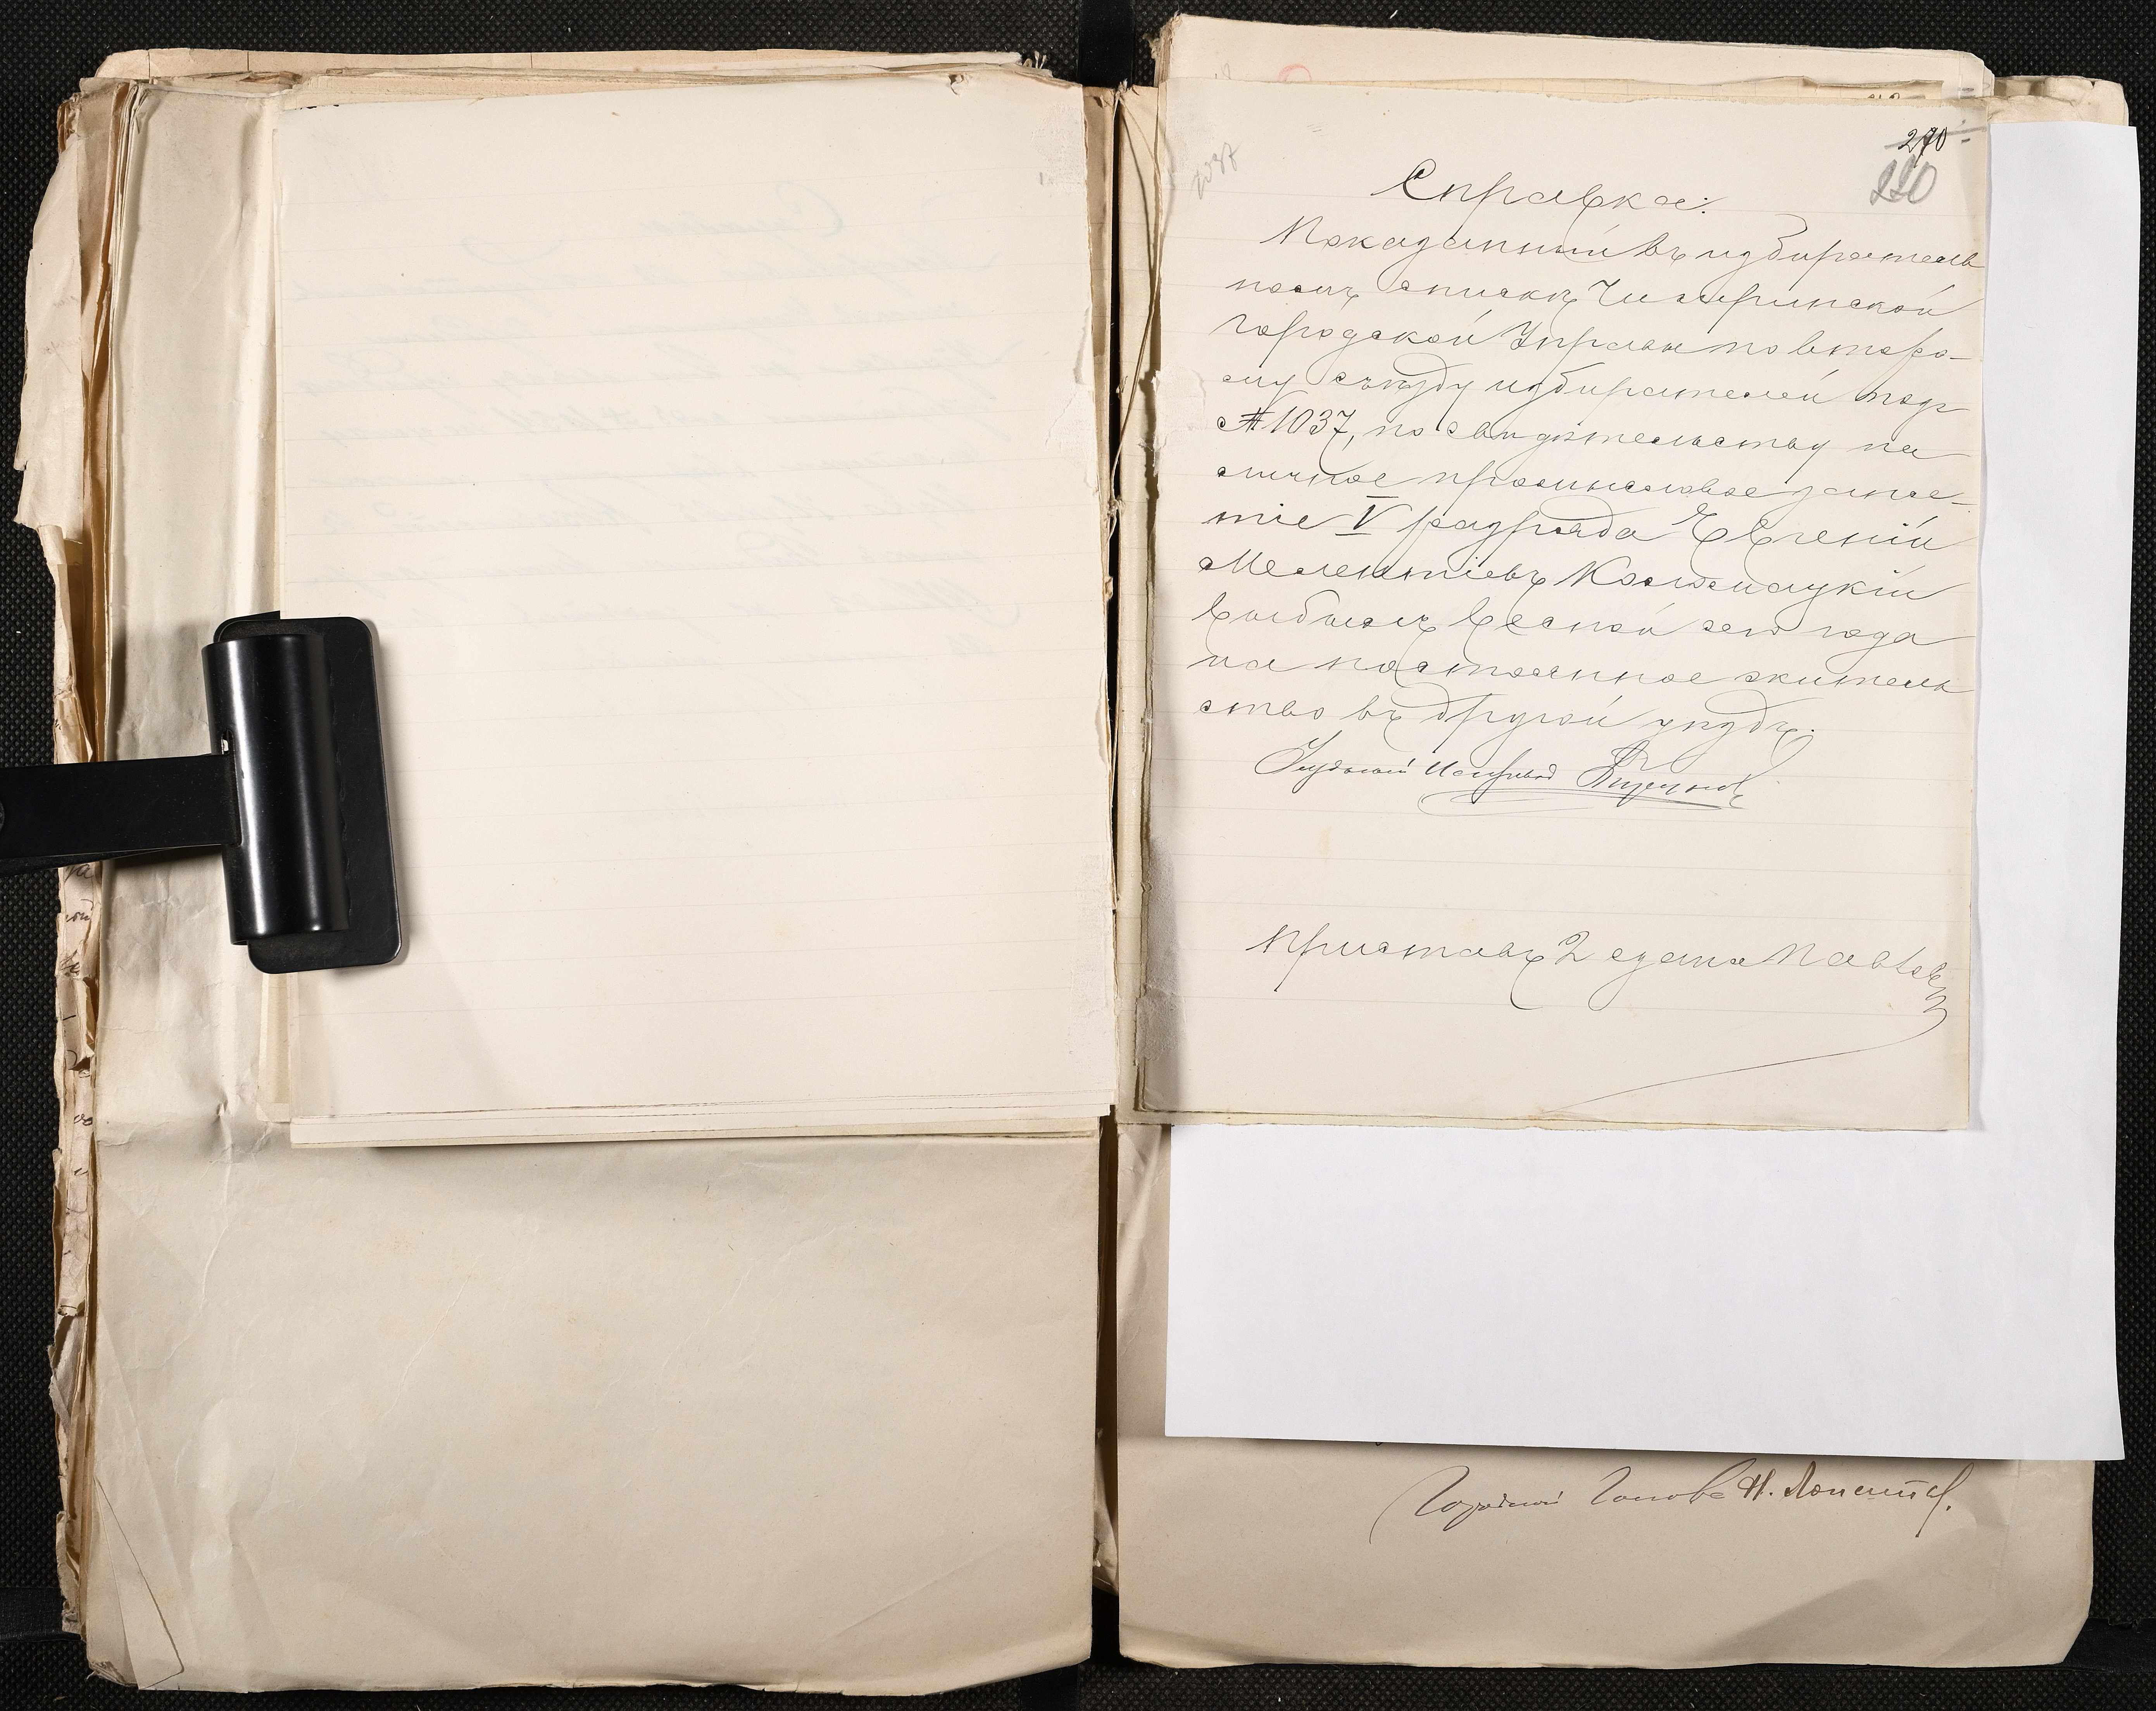 270
220
1037
Справка:
Показанный въ избиратель
номъ списке Чигиринской
Городской Управы по второ-
му съезду избирателей под
№ 1037, по свидетельству на
личное промысловое заня-
тіе V разряда Евгеній
Мелентіевъ
выбылъ весной сего года
на постоянное житель
ство въ другой уездъ.
Уездный Исправ
Приставъ 2 стана
Городской Голова Н.